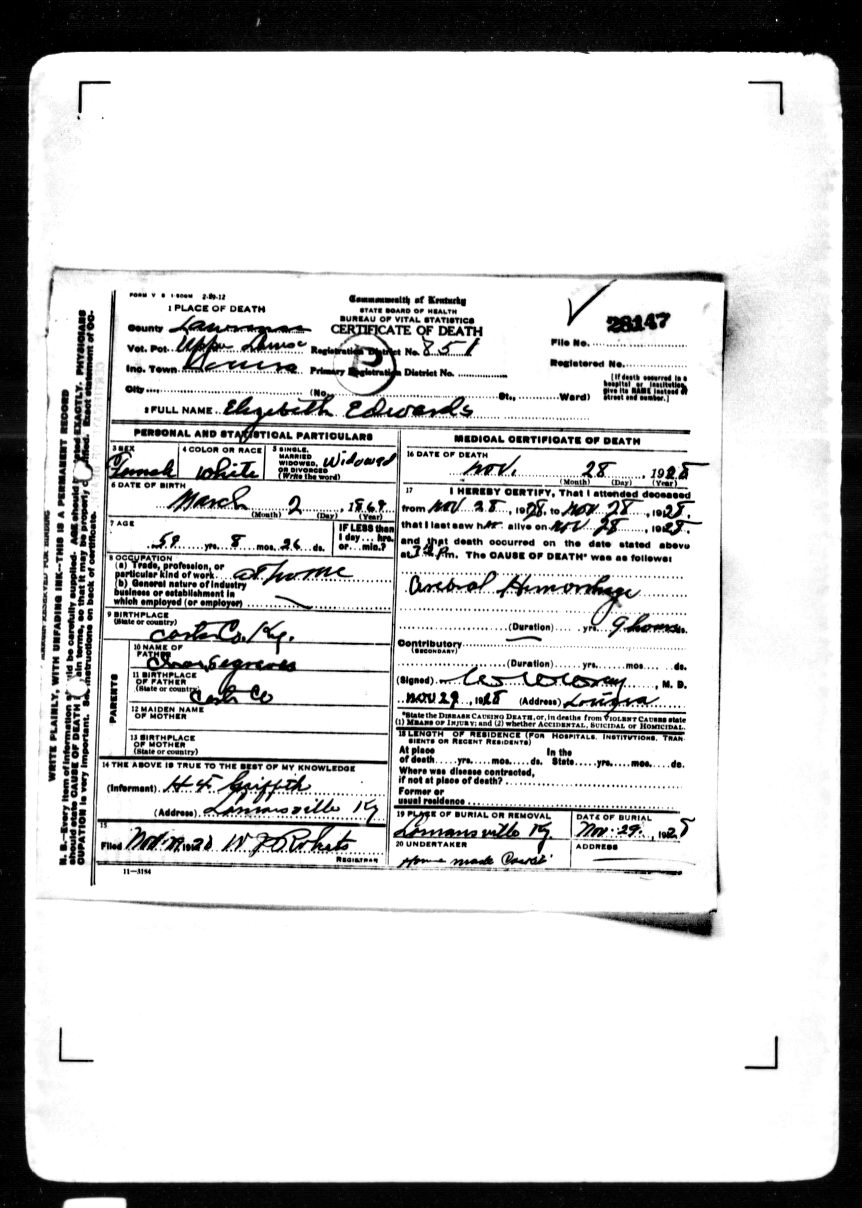 FORM V S 1-500M 2-29-12
Commonwealth of Kentucky
STATE BOARD OF HEALTH
BUREAU OF VITAL STATISTICS
CERTIFICATE OF DEATH
1 PLACE OF DEATH
County Lawrence
Vot. Pct. Upper Louisa Registration District No. 851
File No.
28147
Inc. Town Louisa Primary Registration District No.
Registered No.
City (No. St., Ward)
[If death occurred in a hospital or institution, give its NAME instead of street and number.]
2 FULL NAME Elizabeth Edwards
PERSONAL AND STATISTICAL PARTICULARS
3 SEX
Female
4 COLOR OR RACE
white
5 SINGLE, MARRIED WIDOWED, OR DIVORCED (Write the word)
Widowed
6 DATE OF BIRTH
March 2, 1869
(Month) (Day) (Year)
7 AGE
59 yrs. 8 mos. 26 ds.
IF LESS than 1 day... hrs. or... min.?
8 OCCUPATION
(a) Trade, profession, or
particular kind of work at home
(b) General nature of industry
business or establishment in
which employed (or employer)
9 BIRTHPLACE
(State or country)
Carter Co. Ky.
PARENTS
10 NAME OF FATHER
Segraves
11 BIRTHPLACE OF FATHER
(State or country)
Carter Co
12 MAIDEN NAME OF MOTHER
13 BIRTHPLACE OF MOTHER
(State or country)
14 THE ABOVE IS TRUE TO THE BEST OF MY KNOWLEDGE
(Informant) H F Griffith
(Address) Lomansville Ky
15
Filed Nov. 29, 1928 W J Roberts
REGISTRAR
11—3184
MEDICAL CERTIFICATE OF DEATH
16 DATE OF DEATH
Nov. 28, 1928
(Month) (Day) (Year)
17 I HEREBY CERTIFY, That I attended deceased
from Nov 28, 1928, to Nov 28, 1928,
that I last saw her alive on Nov 28, 1928,
and that death occurred on the date stated above
at m. The CAUSE OF DEATH* was as follows:
Cerebral Hemorrhage
(Duration) yrs. 9 hours ds.
Contributory
(SECONDARY)
(Duration) yrs. mos. ds.
(Signed) M. D.
Nov 29, 1928 (Address) Louisa
*State the DISEASE CAUSING DEATH, or, in deaths from VIOLENT CAUSES state
(1) MEANS OF INJURY; and (2) whether ACCIDENTAL, SUICIDAL or HOMICIDAL.
18 LENGTH OF RESIDENCE (FOR HOSPITALS, INSTITUTIONS, TRANSIENTS OR RECENT RESIDENTS)
At place of death yrs. mos. ds. In the State yrs. mos. ds.
Where was disease contracted,
if not at place of death?
Former or
usual residence
19 PLACE OF BURIAL OR REMOVAL
Lomansville Ky.
DATE OF BURIAL
Nov. 29, 1928
20 UNDERTAKER
Home made Casket
ADDRESS
WRITE PLAINLY, WITH UNFADING INK—THIS IS A PERMANENT RECORD